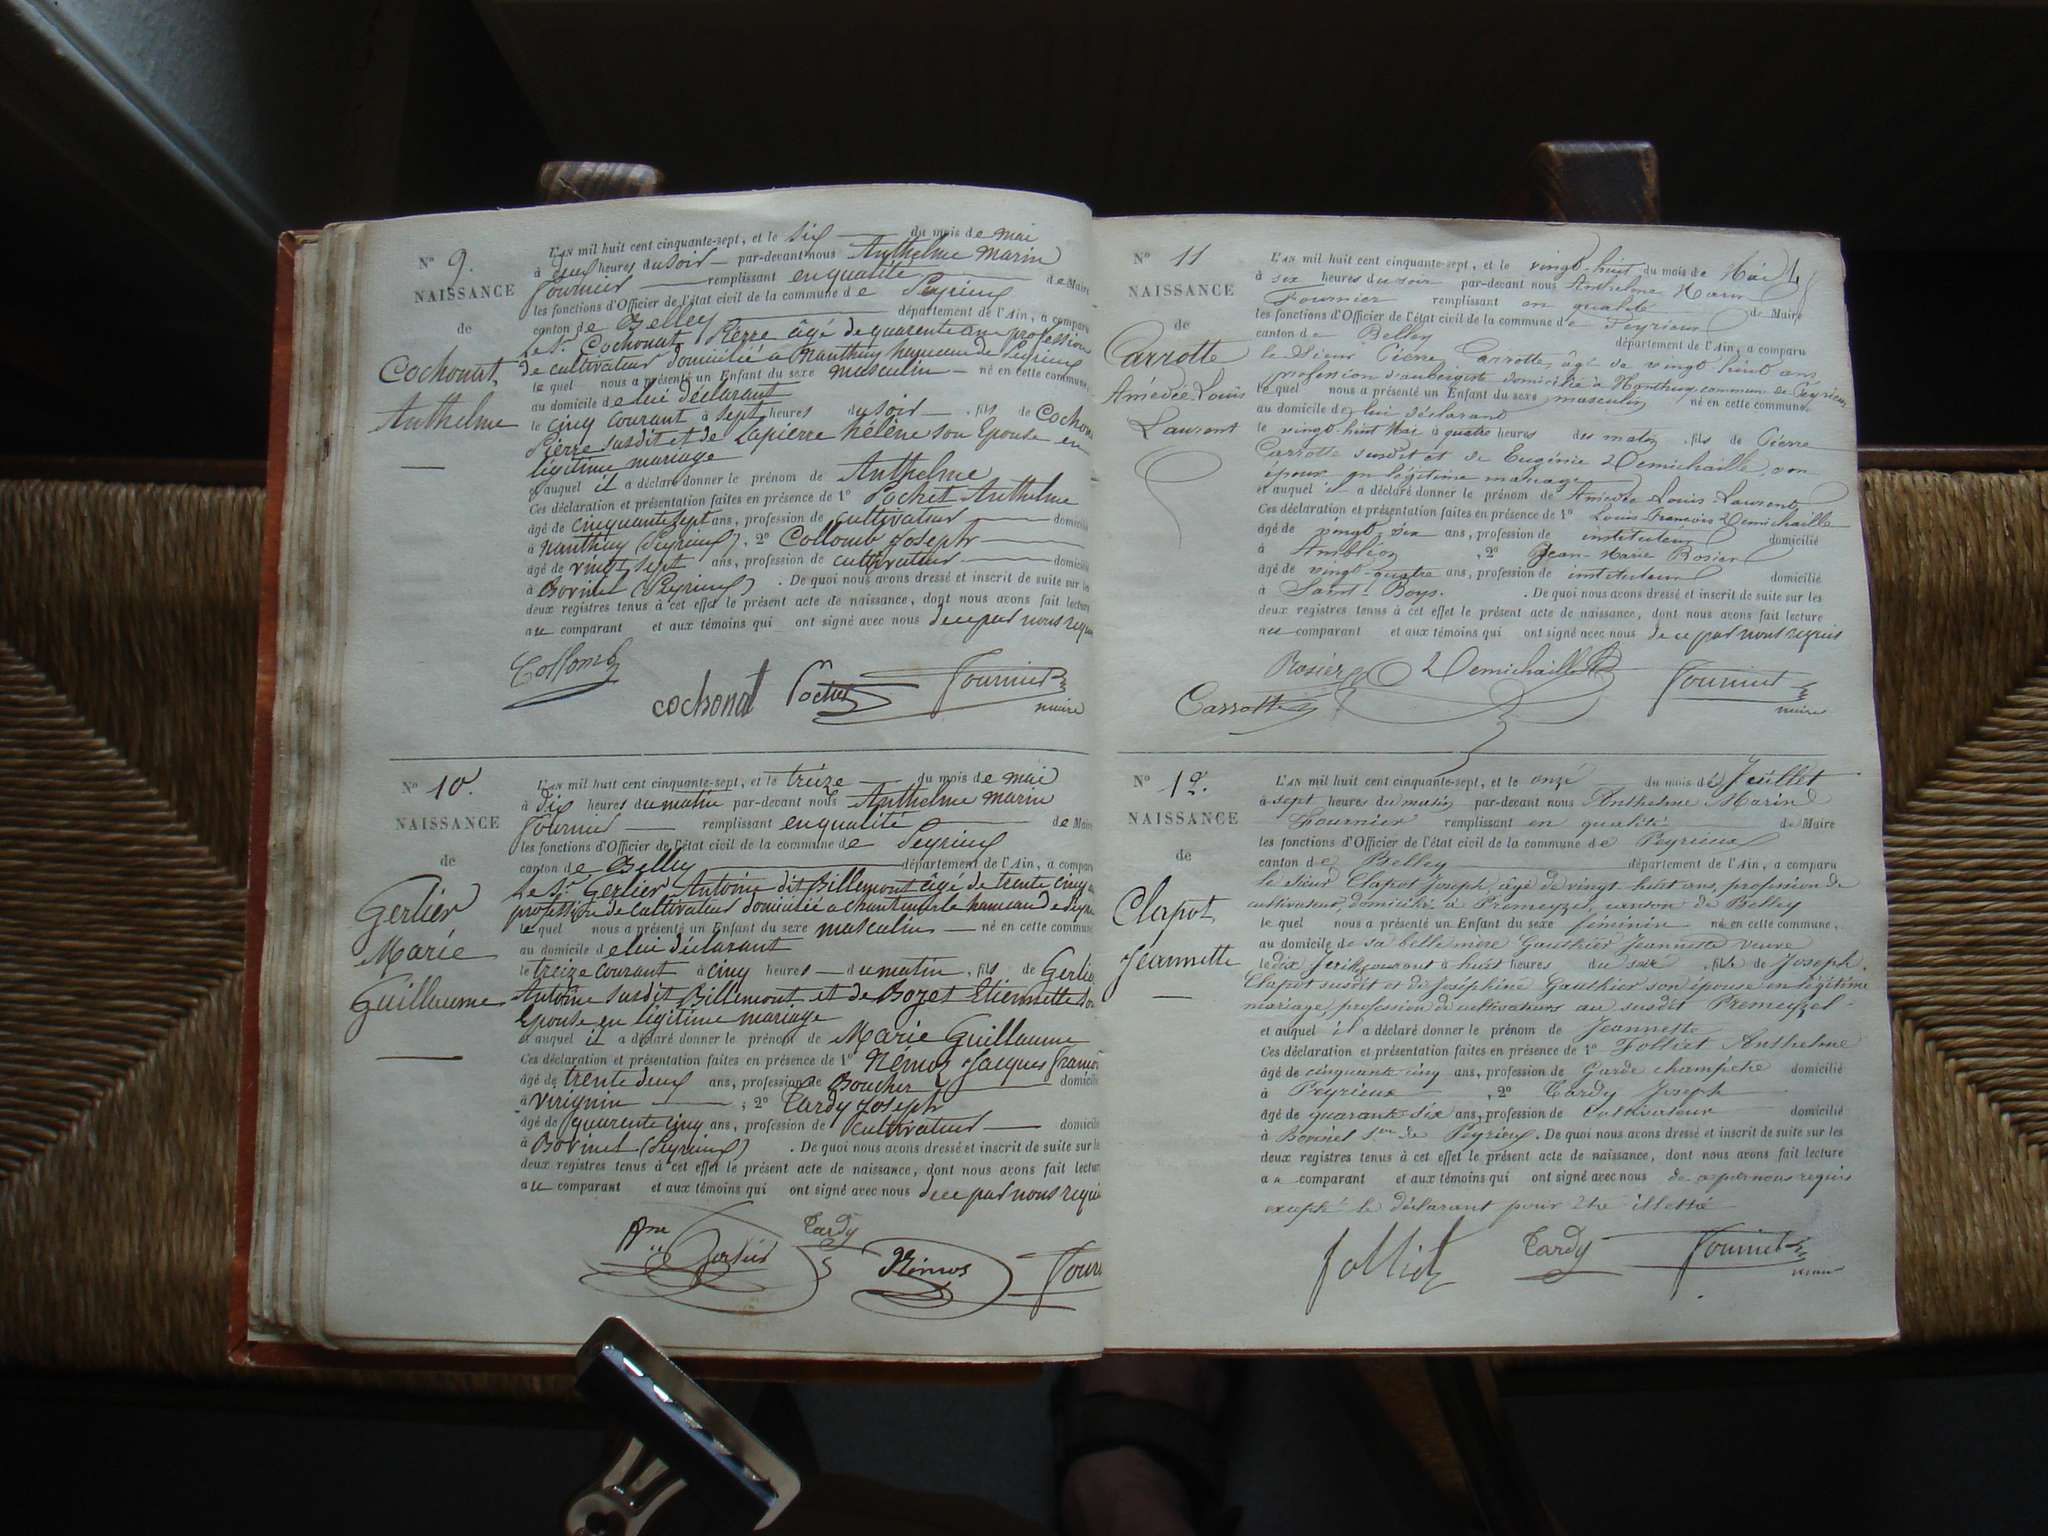 N° 9.
NAISSANCE
de
Cochonat,
Anthelme
L'AN mil huit cent cinquante-sept, et le six du mois de mai
à deux heures du soir par-devant nous Anthelme Marin
Fournier remplissant en qualité de Maire
les fonctions d'Officier de l'état civil de la commune de Peyrieux
canton de Belley département de l'Ain, a comparu
le Sr. Cochonat Pierre âgé de quarente ans profession
de cultivateur domicilié a Nanthuy hameau de Peyrieux
le quel nous a présenté un Enfant du sexe masculin né en cette commune,
au domicile de lui déclarant
le cinq courant à sept heures du soir, fils de Cochona
Pierre susdit et de Lapierre hélène son Epouse en
légitime mariage
et auquel il a déclaré donner le prénom de Anthelme
Ces déclaration et présentation faites en présence de 1° Pochet Anthelme
âgé de cinquante sept ans, profession de cultivateur domicilié
à Nanthuy (Peyrieux). 2° Collomb Joseph
âgé de vingt sept ans, profession de cultivateur domicilié
à Bovinel (Peyrieux). De quoi nous avons dressé et inscrit de suite sur les
deux registres tenus à cet effet le présent acte de naissance, dont nous avons fait lecture
au comparant et aux témoins qui ont signé avec nous de ce par nous requis
Collomb
cochonat Pochet Fournier
maire
N° 10.
NAISSANCE
de
Gerlier
Marie
Guillaume
L'AN mil huit cent cinquante-sept, et le treize du mois de mai
à dix heures du matin par-devant nous Anthelme Marin
Fournier remplissant en qualité de Maire
les fonctions d'Officier de l'état civil de la commune de Peyrieux
canton de Belley département de l'Ain, a comparu
le Sr. Gerlier Antoine dit Billemont âgé de trente cinq
profession de cultivateur domicilié a hameau de
le quel nous a présenté un Enfant du sexe masculin né en cette commune
au domicile de lui déclarant
le treize courant à cinq heures du matin, fils de Gerlier
Antoine susdit Billemont et de Bozet Etiennette son
Epouse en légitime mariage
et auquel il a déclaré donner le prénom de Marie Guillaume
Ces déclaration et présentation faites en présence de 1° Némoz Jacques françois
âgé de trente deux ans, profession de Boucher domicilié
à Virignin ; 2° Tardy Joseph
âgé de quarente cinq ans, profession de cultivateur domicilié
à Bovinel (Peyrieux). De quoi nous avons dressé et inscrit de suite sur les
deux registres tenus à cet effet le présent acte de naissance, dont nous avons fait lecture
au comparant et aux témoins qui ont signé avec nous de ce par nous requis
Ane Gerlier Tardy Némos Fourn
N° 11
NAISSANCE
de
Carrotte
Amédée Louis
Laurent
L'AN mil huit cent cinquante-sept, et le vingt-huit du mois de Mai
à six heures du soir par-devant nous Anthelme Marin
Fournier remplissant en qualité de Maire
les fonctions d'Officier de l'état civil de la commune de Peyrieux
canton de Belley département de l'Ain, a comparu
le Sieur Pierre Carrotte, âgé de vingt huit ans,
profession d'aubergiste domicilié à Nanthuy commune de Peyrieux
le quel nous a présenté un Enfant du sexe masculin né en cette commune,
au domicile de lui déclarant
le vingt-huit Mai à quatre heures du matin, fils de Pierre
Carrotte susdit et de Eugénie Demichaille, son
épouse en légitime mariage
et auquel il a déclaré donner le prénom de Amédée Louis Laurent
Ces déclaration et présentation faites en présence de 1° Louis François Demichaille
âgé de vingt six ans, profession de instituteur domicilié
à Ambléon, 2° Jean-Marie Rosier
âgé de vingt-quatre ans, profession de instituteur domicilié
à Saint-Boys. De quoi nous avons dressé et inscrit de suite sur les
deux registres tenus à cet effet le présent acte de naissance, dont nous avons fait lecture
au comparant et aux témoins qui ont signé avec nous de ce par nous requis
Rosier Demichaille Fournier
Carrotte maire
N° 12.
NAISSANCE
de
Clapot,
Jeannette
L'AN mil huit cent cinquante-sept, et le onze du mois de Juillet
à sept heures du matin par-devant nous Anthelme Marin
Fournier remplissant en qualité de Maire
les fonctions d'Officier de l'état civil de la commune de Peyrieux
canton de Belley département de l'Ain, a comparu
le sieur Clapot Joseph, âgé de vingt huit ans, profession de
cultivateur, domicilié à Premeyzel, canton de Belley
le quel nous a présenté un Enfant du sexe féminin né en cette commune,
au domicile de sa belle mère Gauthier Jeannette veuve
le dix Juillet courant à huit heures du soir, fille de Joseph
Clapot susdit et de Joséphine Gauthier son épouse en légitime
mariage, profession de cultivateurs au susdit Premeyzel
et auquel il a déclaré donner le prénom de Jeannette
Ces déclaration et présentation faites en présence de 1° Folliet Anthelme
âgé de cinquante cinq ans, profession de Garde champêtre domicilié
à Peyrieux, 2° Tardy Joseph
âgé de quarante-six ans, profession de Cultivateur domicilié
à Bovinel de Peyrieux. De quoi nous avons dressé et inscrit de suite sur les
deux registres tenus à cet effet le présent acte de naissance, dont nous avons fait lecture
au comparant et aux témoins qui ont signé avec nous de ce par nous requis
excepté le déclarant pour être illettré
folliet Tardy Fournier
maire